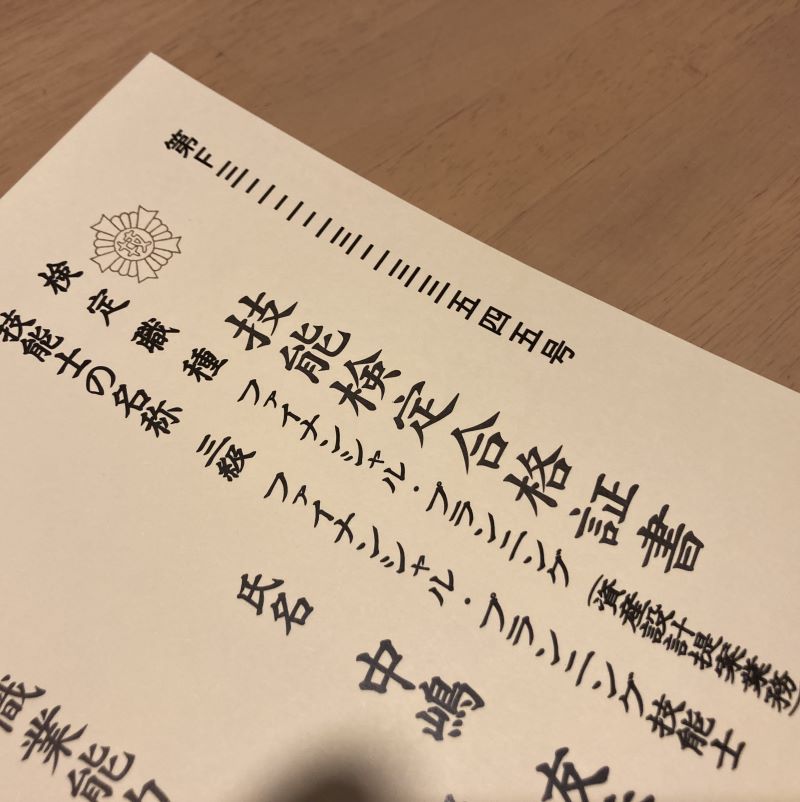 第F三一一一三一三三五四五号
技能検定合格証書
検定職種 ファイナンシャル・プランニング(資産設計提案業務)
技能士の名称 三級 ファイナンシャル・プランニング技能士
氏名 中嶋 友
職業能力